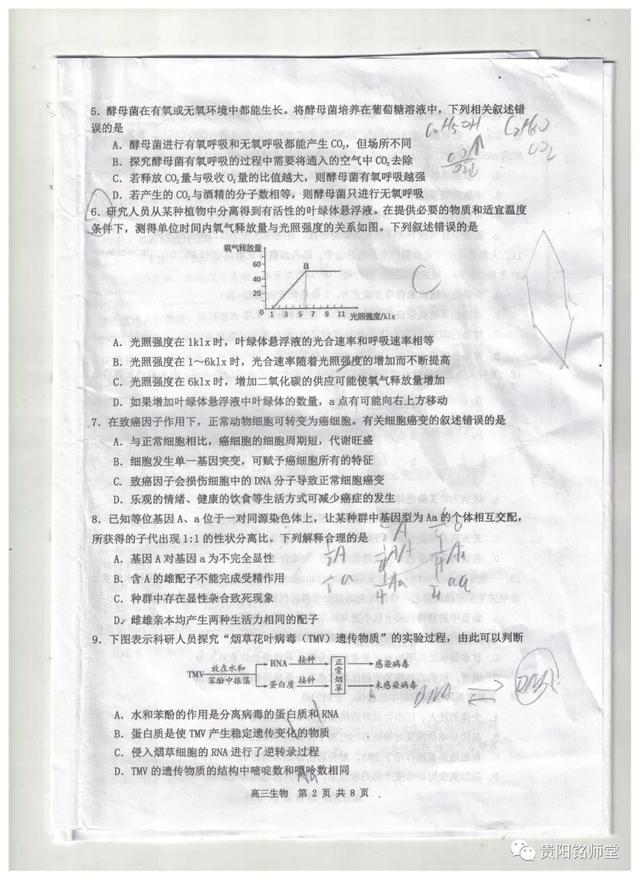 5. 酵母菌在有氧或无氧环境中都能生长。将酵母菌培养在葡萄糖溶液中，下列相关叙述错
误的是
A. 酵母菌进行有氧呼吸和无氧呼吸都能产生CO₂，但场所不同
B. 探究酵母菌有氧呼吸的过程中需要将通入的空气中CO₂去除
C. 若释放CO₂量与吸收O₂量的比值越大，则酵母菌有氧呼吸越强
D. 若产生的CO₂与酒精的分子数相等，则酵母菌只进行无氧呼吸
C₂H₅OH
CO₂
6. 研究人员从某种植物中分离得到有活性的叶绿体悬浮液。在提供必要的物质和适宜温度
条件下，测得单位时间内氧气释放量与光照强度的关系如图。下列叙述错误的是
氧气释放量
60
40
20
0
a
1 3 5 7 9 11 光照强度/klx
C
A. 光照强度在1klx时，叶绿体悬浮液的光合速率和呼吸速率相等
B. 光照强度在1～6klx时，光合速率随着光照强度的增加而不断提高
C. 光照强度在6klx时，增加二氧化碳的供应可能使氧气释放量增加
D. 如果增加叶绿体悬浮液中叶绿体的数量，a点有可能向右上方移动
7. 在致癌因子作用下，正常动物细胞可转变为癌细胞。有关细胞癌变的叙述错误的是
A. 与正常细胞相比，癌细胞的细胞周期短，代谢旺盛
B. 细胞发生单一基因突变，可赋予癌细胞所有的特征
C. 致癌因子会损伤细胞中的DNA分子导致正常细胞癌变
D. 乐观的情绪、健康的饮食等生活方式可减少癌症的发生
8. 已知等位基因A、a位于一对同源染色体上，让某种群中基因型为Aa的个体相互交配，
所获得的子代出现1:1的性状分离比。下列解释合理的是
A. 基因A对基因a为不完全显性
B. 含A的雄配子不能完成受精作用
C. 种群中存在显性杂合致死现象
D. 雌雄亲本均产生两种生活力相同的配子
9. 下图表示科研人员探究“烟草花叶病毒（TMV）遗传物质”的实验过程，由此可以判断
TMV 放在水和苯酚中振荡
RNA 接种
蛋白质 接种
正常烟草
感染病毒
未感染病毒
A. 水和苯酚的作用是分离病毒的蛋白质和RNA
B. 蛋白质是使TMV产生稳定遗传变化的物质
C. 侵入烟草细胞的RNA进行了逆转录过程
D. TMV的遗传物质的结构中嘧啶数和嘌呤数相同
高三生物 第2页 共8页
贵阳铭师堂